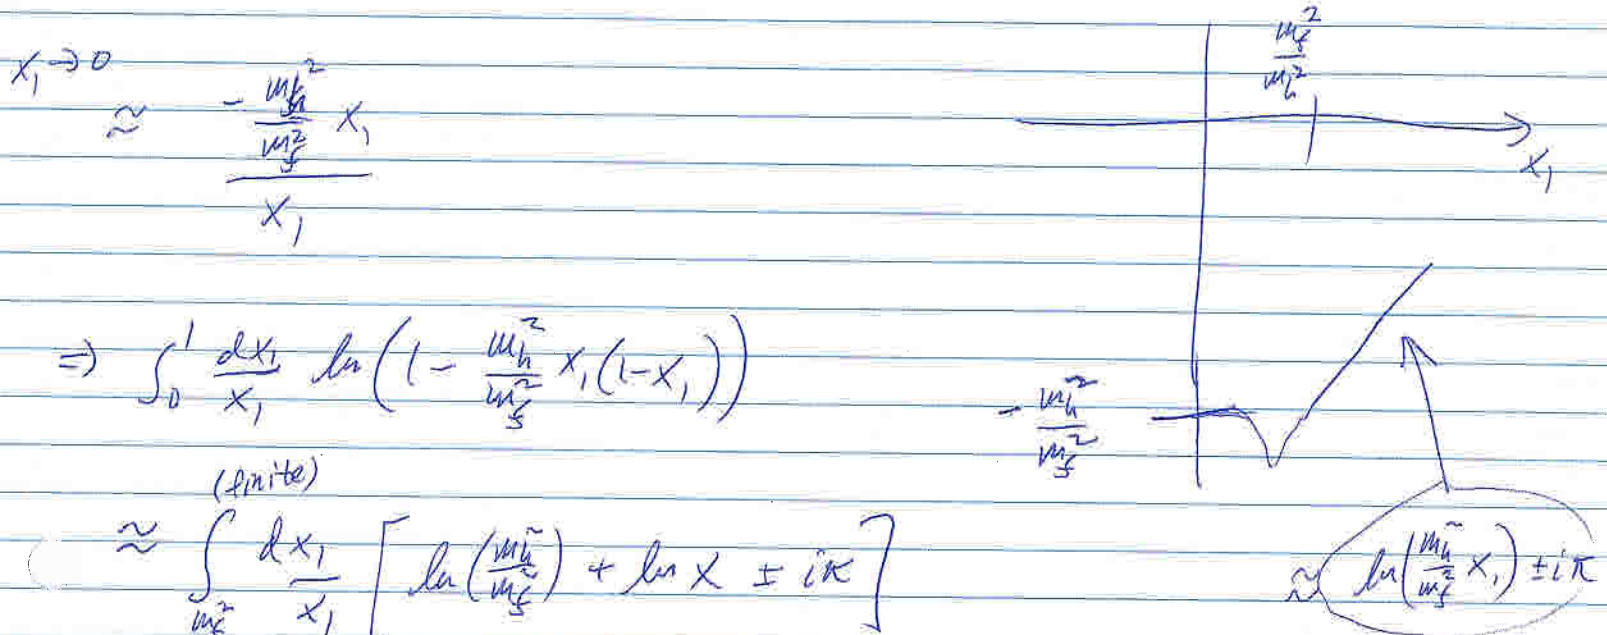 x₁ → 0
≈ (-(m_h²/m_f²) x₁)/x₁
⇒ ∫₀¹ dx₁/x₁ ln(1 - (m_h²/m_f²) x₁(1-x₁))
(finite)
≈ ∫_{m_f²} dx₁/x₁ [ln(m_h²/m_f²) + ln x ± iπ]
m_f²/m_h²
x₁
-m_h²/m_f²
≈ ln((m_h²/m_f²) x₁) ± iπ